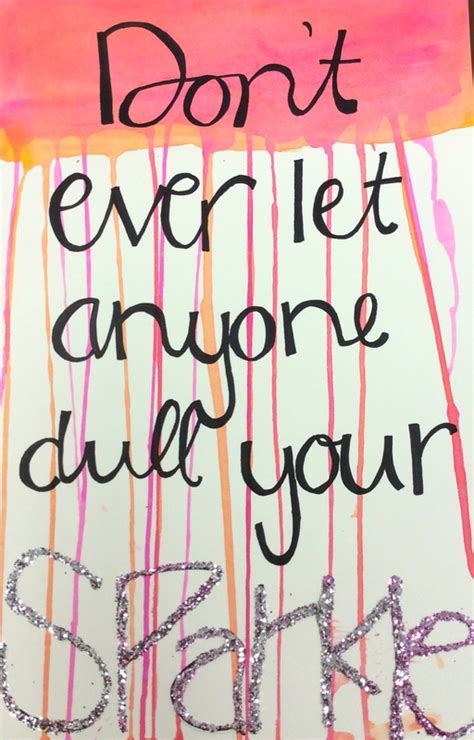 Don't
ever let
anyone
dull your
SParkle